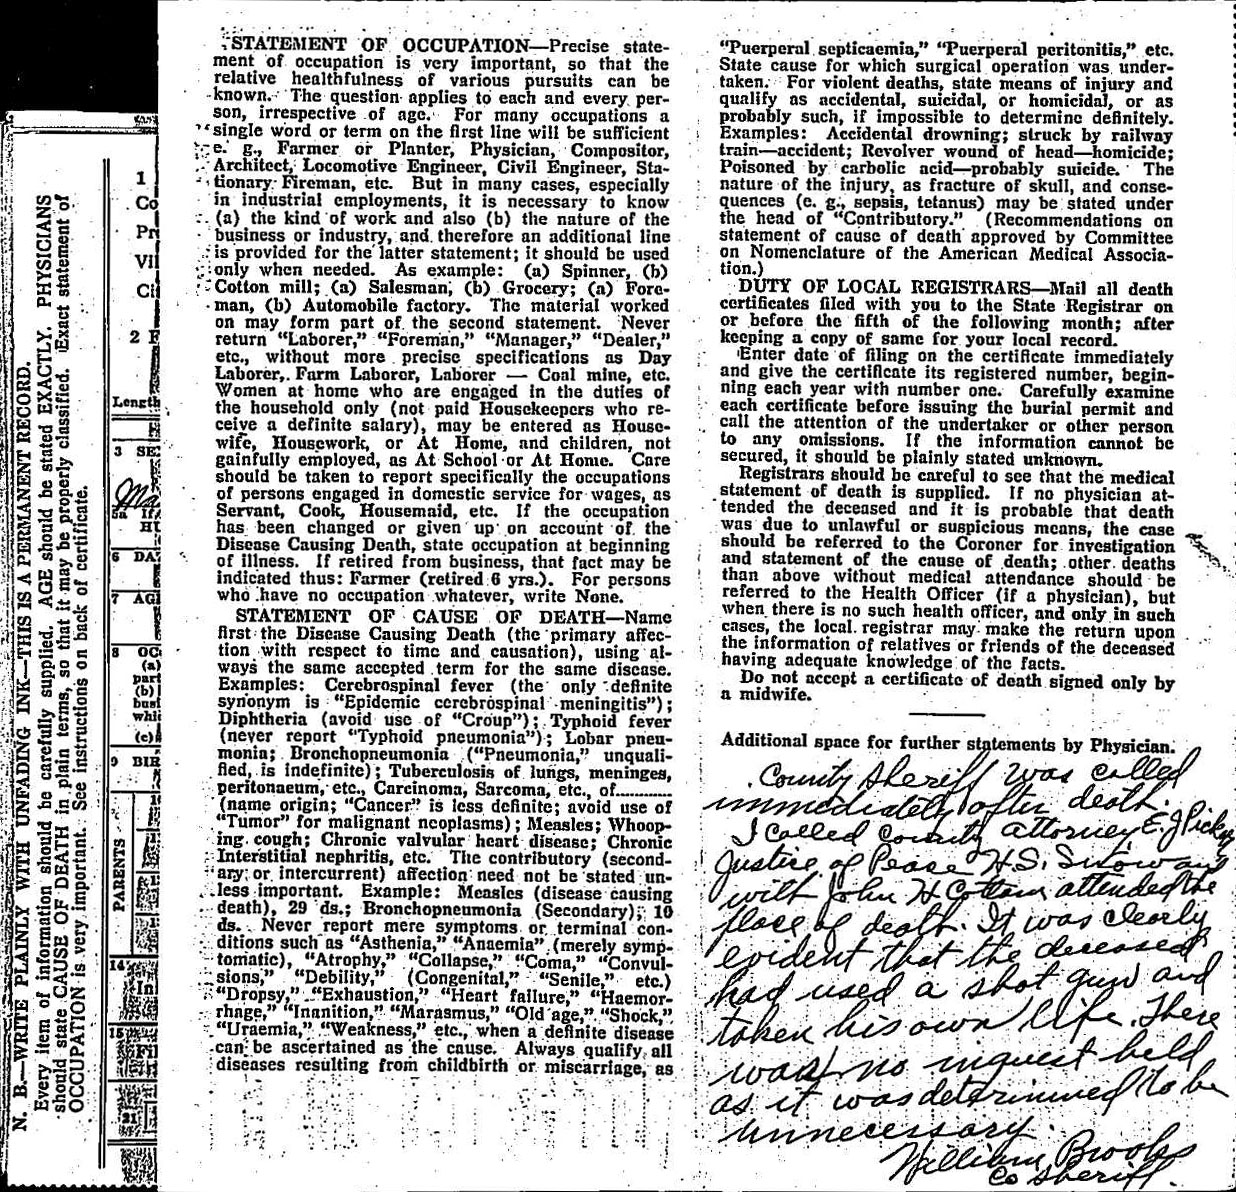 N. B.—WRITE PLAINLY WITH UNFADING INK—THIS IS A PERMANENT RECORD.
Every item of information should be carefully supplied. AGE should be stated EXACTLY. PHYSICIANS
should state CAUSE OF DEATH in plain terms, so that it may be properly classified. Exact statement of
OCCUPATION is very important. See instructions on back of certificate.
1
Co
Pr
Vil
Ci
2 F
Length
3 SE
Ma
5a If
HU
6 DA
7 AG
8 OC
(a)
part
(b)
busi
whi
(c)
9 BIR
PARENTS
14
In
15
Fil
21
STATEMENT OF OCCUPATION—Precise state-
ment of occupation is very important, so that the
relative healthfulness of various pursuits can be
known. The question applies to each and every per-
son, irrespective of age. For many occupations a
single word or term on the first line will be sufficient
e. g., Farmer or Planter, Physician, Compositor,
Architect, Locomotive Engineer, Civil Engineer, Sta-
tionary Fireman, etc. But in many cases, especially
in industrial employments, it is necessary to know
(a) the kind of work and also (b) the nature of the
business or industry, and therefore an additional line
is provided for the latter statement; it should be used
only when needed. As example: (a) Spinner, (b)
Cotton mill; (a) Salesman, (b) Grocery; (a) Fore-
man, (b) Automobile factory. The material worked
on may form part of the second statement. Never
return "Laborer," "Foreman," "Manager," "Dealer,"
etc., without more precise specifications as Day
Laborer, Farm Laborer, Laborer — Coal mine, etc.
Women at home who are engaged in the duties of
the household only (not paid Housekeepers who re-
ceive a definite salary), may be entered as House-
wife, Housework, or At Home, and children, not
gainfully employed, as At School or At Home. Care
should be taken to report specifically the occupations
of persons engaged in domestic service for wages, as
Servant, Cook, Housemaid, etc. If the occupation
has been changed or given up on account of the
Disease Causing Death, state occupation at beginning
of illness. If retired from business, that fact may be
indicated thus: Farmer (retired 6 yrs.). For persons
who have no occupation whatever, write None.
STATEMENT OF CAUSE OF DEATH—Name
first the Disease Causing Death (the primary affec-
tion with respect to time and causation), using al-
ways the same accepted term for the same disease.
Examples: Cerebrospinal fever (the only definite
synonym is "Epidemic cerebrospinal meningitis");
Diphtheria (avoid use of "Croup"); Typhoid fever
(never report "Typhoid pneumonia"); Lobar pneu-
monia; Bronchopneumonia ("Pneumonia," unquali-
fied, is indefinite); Tuberculosis of lungs, meninges,
peritonaeum, etc., Carcinoma, Sarcoma, etc., of............
(name origin; "Cancer" is less definite; avoid use of
"Tumor" for malignant neoplasms); Measles; Whoop-
ing cough; Chronic valvular heart disease; Chronic
Interstitial nephritis, etc. The contributory (second-
ary or intercurrent) affection need not be stated un-
less important. Example: Measles (disease causing
death), 29 ds.; Bronchopneumonia (Secondary), 10
ds. Never report mere symptoms or terminal con-
ditions such as "Asthenia," "Anaemia" (merely symp-
tomatic), "Atrophy," "Collapse," "Coma," "Convul-
sions," "Debility," (Congenital," "Senile," etc.)
"Dropsy," "Exhaustion," "Heart failure," "Haemor-
rhage," "Inanition," "Marasmus," "Old age," "Shock,"
"Uraemia," "Weakness," etc., when a definite disease
can be ascertained as the cause. Always qualify all
diseases resulting from childbirth or miscarriage, as
"Puerperal septicaemia," "Puerperal peritonitis," etc.
State cause for which surgical operation was under-
taken. For violent deaths, state means of injury and
qualify as accidental, suicidal, or homicidal, or as
probably such, if impossible to determine definitely.
Examples: Accidental drowning; struck by railway
train—accident; Revolver wound of head—homicide;
Poisoned by carbolic acid—probably suicide. The
nature of the injury, as fracture of skull, and conse-
quences (e. g., sepsis, tetanus) may be stated under
the head of "Contributory." (Recommendations on
statement of cause of death approved by Committee
on Nomenclature of the American Medical Associa-
tion.)
DUTY OF LOCAL REGISTRARS—Mail all death
certificates filed with you to the State Registrar on
or before the fifth of the following month; after
keeping a copy of same for your local record.
Enter date of filing on the certificate immediately
and give the certificate its registered number, begin-
ning each year with number one. Carefully examine
each certificate before issuing the burial permit and
call the attention of the undertaker or other person
to any omissions. If the information cannot be
secured, it should be plainly stated unknown.
Registrars should be careful to see that the medical
statement of death is supplied. If no physician at-
tended the deceased and it is probable that death
was due to unlawful or suspicious means, the case
should be referred to the Coroner for investigation
and statement of the cause of death; other deaths
than above without medical attendance should be
referred to the Health Officer (if a physician), but
when there is no such health officer, and only in such
cases, the local registrar may make the return upon
the information of relatives or friends of the deceased
having adequate knowledge of the facts.
Do not accept a certificate of death signed only by
a midwife.
Additional space for further statements by Physician.
County sheriff was called
immediately after death.
I called County attorney E. J Pick
Justice of Pease H.S. Snow and
with John H Cottam attended the
place of death. It was clearly
evident that the deceased
had used a shot gun and
taken his own life. There
was no inquest held
as it was determined to be
unnecessary.
William Brooks
Co Sheriff.